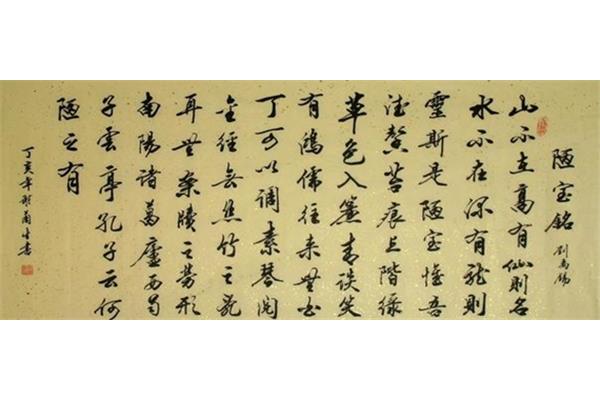 陋室銘 劉禹錫
山不在高有仙則名
水不在深有龍則
靈斯是陋室惟吾
德馨苔痕上階綠
草色入簾青談笑
有鴻儒往来無白
丁可以调素琴阅
金經無絲竹之亂
耳無案牘之勞形
南陽諸葛廬西蜀
子雲亭孔子云何
陋之有
丁亥年書